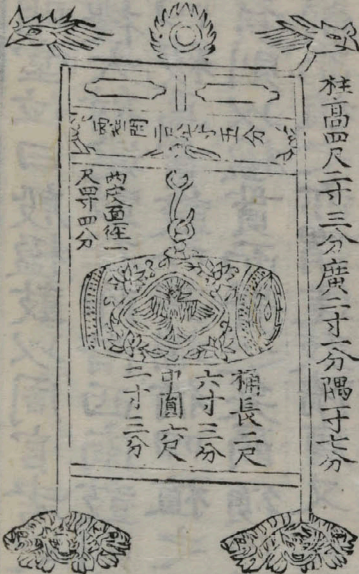 柱高四尺二寸三分廣二寸一分隅一寸七分
桶長二尺
六寸三分
中圓六尺
二寸二分
兩皮面徑一
尺四寸四分